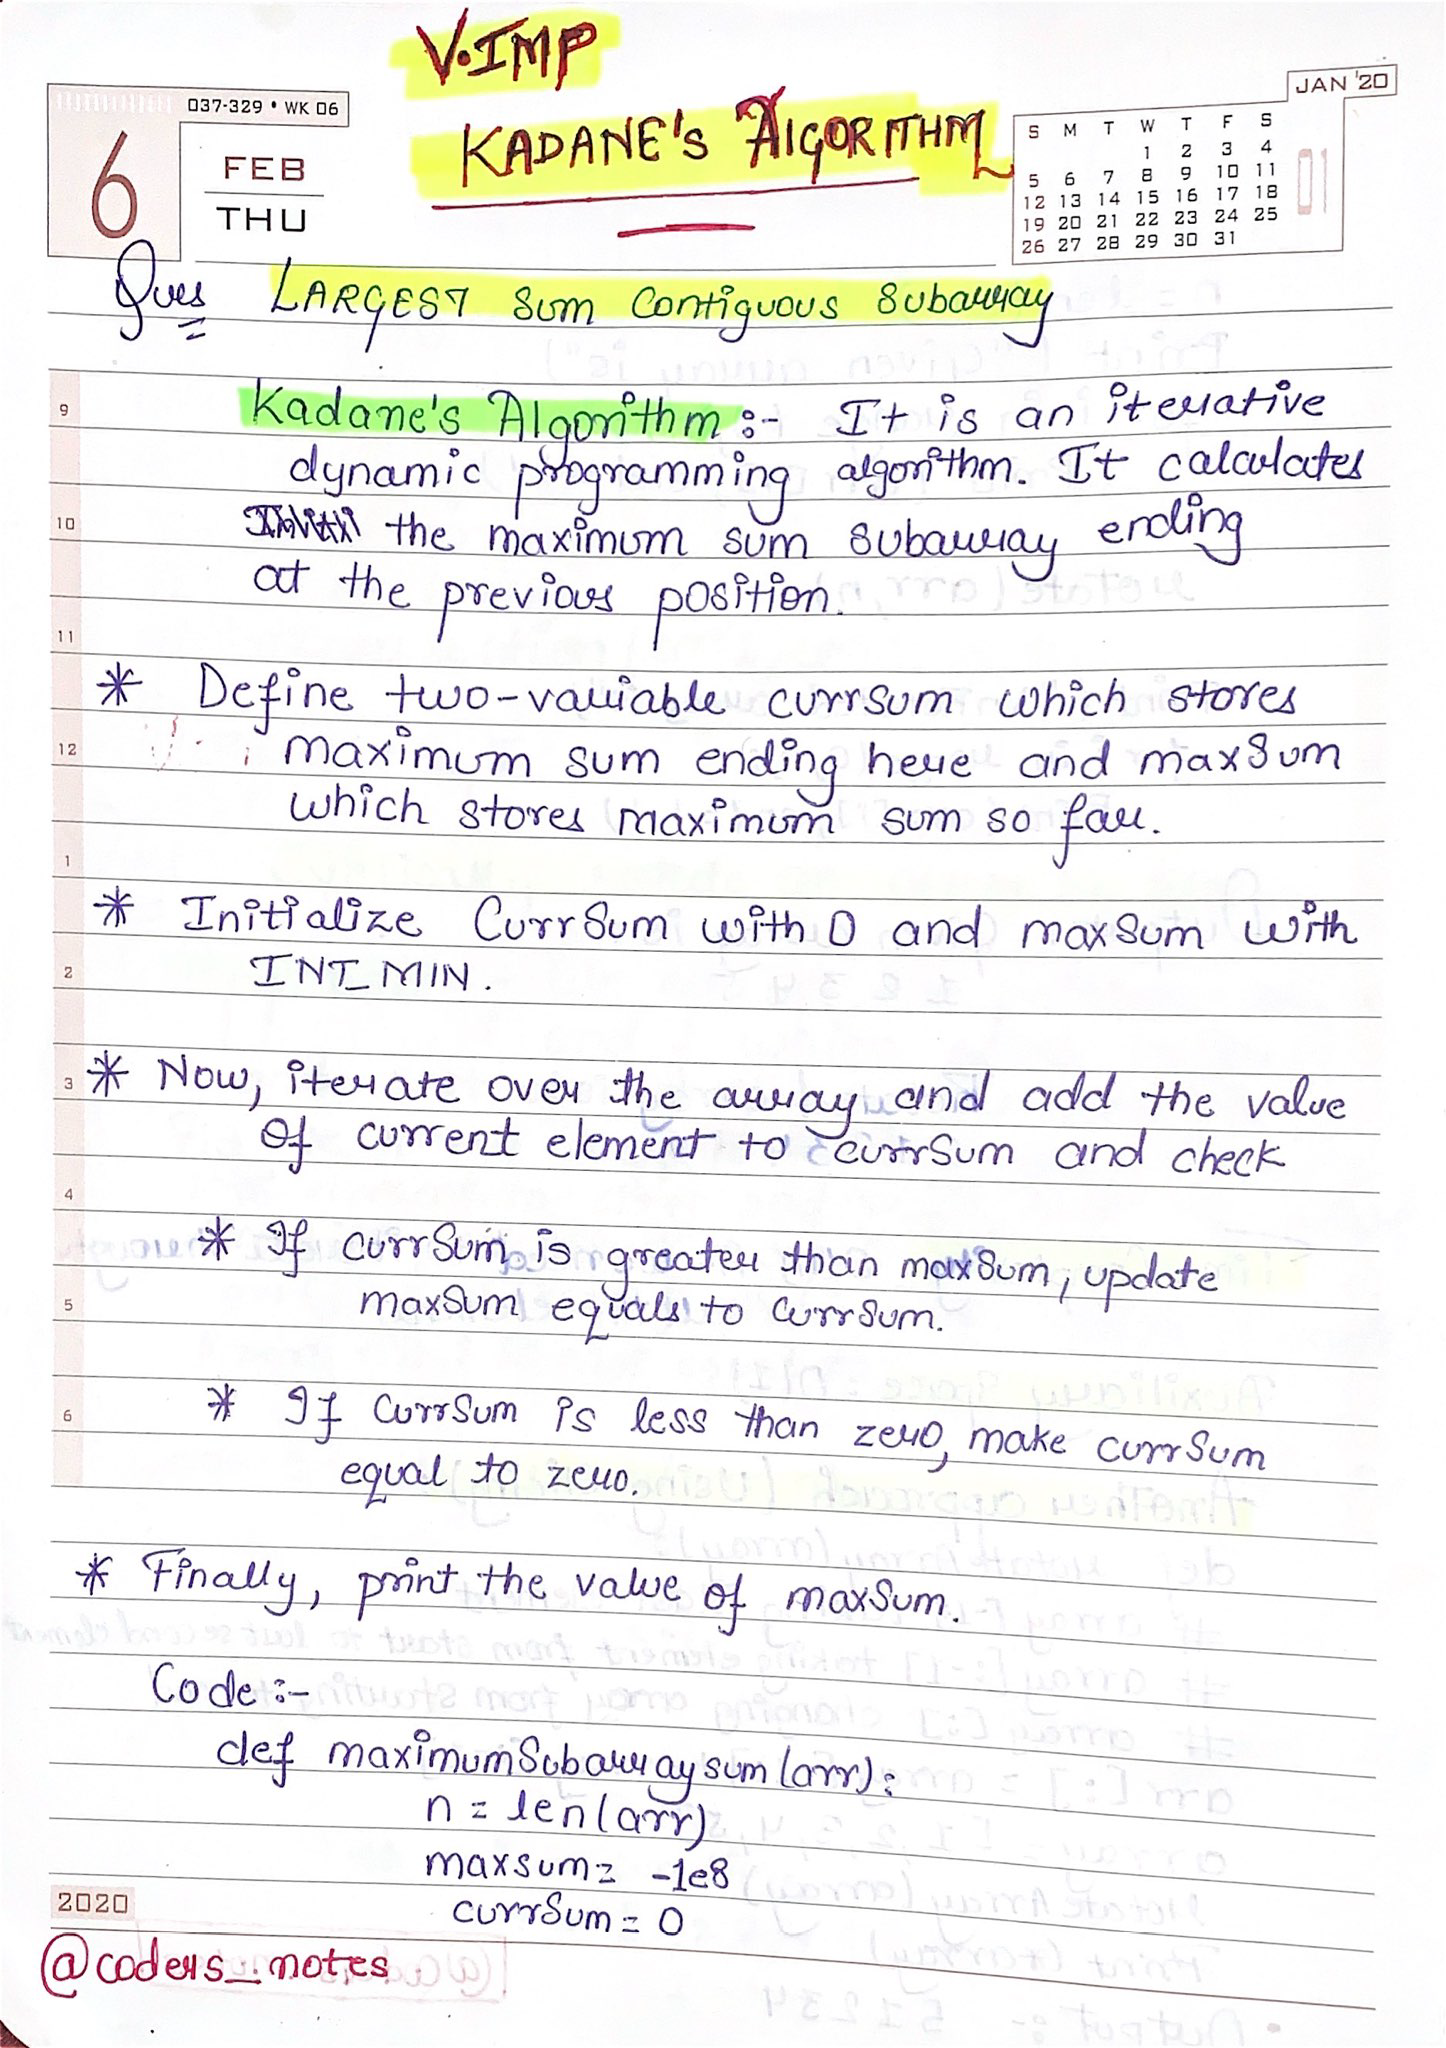 V.IMP
KADANE's ALGORITHM
037-329 • WK 06
6
FEB
THU
JAN '20
S M T W T F S
1 2 3 4
5 6 7 8 9 10 11
12 13 14 15 16 17 18
19 20 21 22 23 24 25
26 27 28 29 30 31
01
Ques LARGEST Sum Contiguous Subarray
9
Kadane's Algorithm :- It is an iterative
dynamic programming algorithm. It calculates
10
the maximum sum subarray ending
at the previous position.
11
* Define two-variable currSum which stores
12
maximum sum ending here and maxSum
which stores maximum sum so far.
1
* Initialize CurrSum with 0 and maxSum with
2
INT_MIN.
3
* Now, iterate over the array and add the value
of current element to currSum and check
4
* If currSum is greater than maxSum, update
5
maxSum equals to CurrSum.
6
* If CurrSum is less than zero, make currSum
equal to zero.
* Finally, print the value of maxSum.
Code :-
def maximumSubarraysum(arr):
n = len(arr)
maxsum = -1e8
2020
currSum = 0
@coders_notes